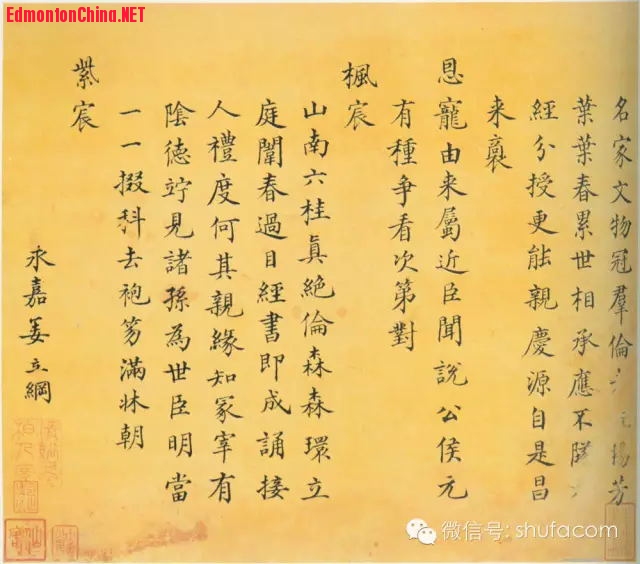 EdmontonChina.NET
名家文物冠羣倫揚芳
葉葉春累世相承應不
經分授更能親慶源自是昌
来裔
恩寵由来屬近臣聞說公侯元
有種爭看次第對
楓宸
山南六桂眞絕倫森森環立
庭闈春過目經書即成誦接
人禮度何其親緣知冢宰有
陰德竚見諸孫為世臣明當
一一掇科去袍笏滿牀朝
紫宸
永嘉姜立綱
微信号: shufacom